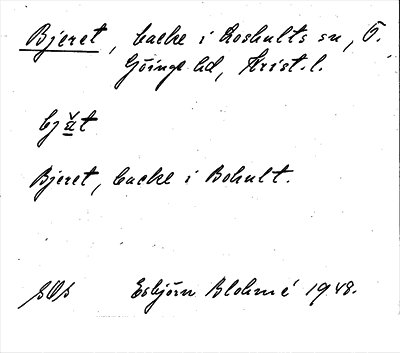 Bjeret, backe i Loshults sn, Ö.
Göinge hd, Krist. l.
Bjeret, backe i Bohult.
Esbjörn Blohmé 1948.